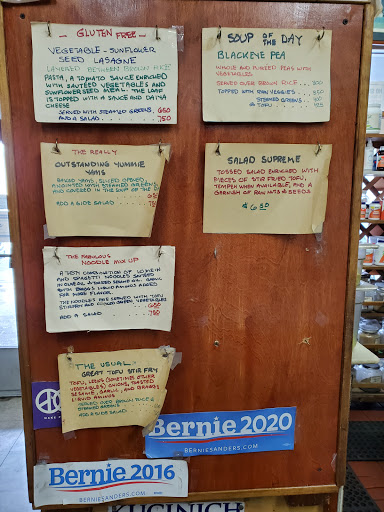 - GLUTEN FREE -
VEGETABLE - SUNFLOWER
SEED LASAGNE
LAYERED BETWEEN BROWN RICE
PASTA, A TOMATO SAUCE ENRICHED
WITH SAUTEED VEGETABLES AND
SUNFLOWER SEED MEAL. THE LOAF
IS TOPPED WITH A SAUCE AND DAIYA
CHEESE
SERVED WITH STEAMED GREENS 650
AND A SALAD .... 750
SOUP OF THE DAY
BLACKEYE PEA
WHOLE AND PUREED PEAS WITH
VEGETABLES
SERVED OVER BROWN RICE... 300
TOPPED WITH RAW VEGGIES
STEAMED GREENS
TOFU
THE REALLY
OUTSTANDING YUMMIE
YAMS
BAKED YAMS, SLICED OPENED,
ANOINTED WITH STEAMED GREENS
AND COVERED IN THE SOUP OF THE
ADD A SIDE SALAD
SALAD SUPREME
TOSSED SALAD ENRICHED WITH
PIECES OF STIR FRIED TOFU,
TEMPEH WHEN AVAILABLE, AND A
GARNISH OF RAW NUTS & SEEDS
$ 6.50
THE FABULOUS
NOODLE MIX UP
A TASTY COMBINATION OF LO MEIN
AND SPAGETTI NOODLES SAUTEED
FOR MORE FLAVOR.
THE NOODLES ARE SERVED WITH TOFU
STIR FRY AND COOKED GREEN VEGETABLES
650
ADD A SALAD .... 750
"THE USUAL"
GREAT TOFU STIR FRY
TOFU, LEEKS (SOMETIMES OTHER
VEGETABLES) ONIONS, TOASTED
SESAME, GARLIC, AND BRAGGS
LIQUID AMINOS
SERVED OVER BROWN RICE &
STEAMED GREENS
ADD A SIDE SALAD
Bernie 2020
BERNIESANDERS.COM
Bernie 2016
BERNIESANDERS.COM
KUCINICH